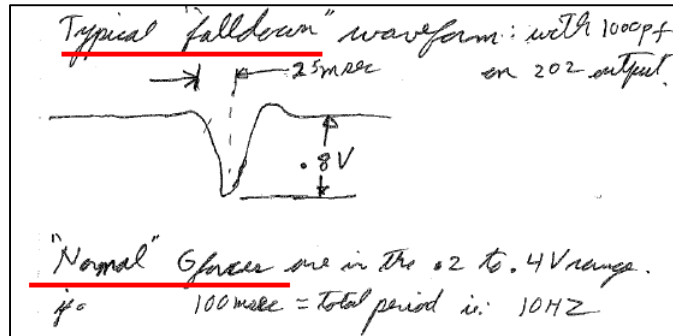 Typical "falldown" waveform: with 1000pf
25msec on 202 output.
.8V
"Normal" Gforces are in the .2 to .4V range.
100msec = total period ie: 10HZ